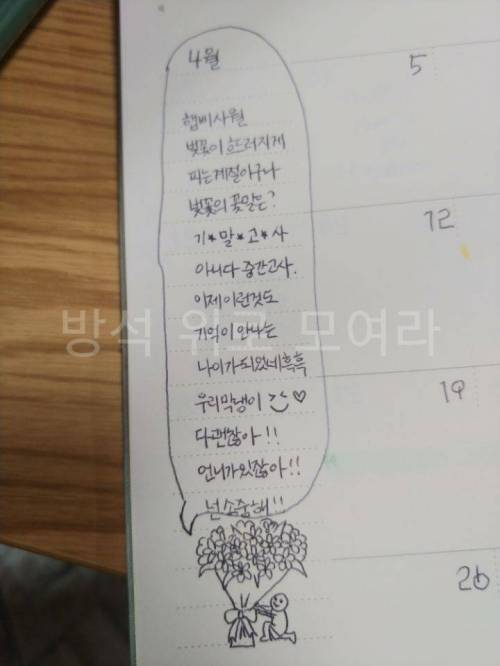 4월
5
햅삐사월
벚꽃이 흐드러지게
피는계절이구나
벚꽃의 꽃말은?
12
기*말*고*사
아니다 중간고사.
이제 이런것도
방석 위로 모여라
기억이 안나는
나이가 되었네 흑흑
19
우리막냉이 ♡
다괜찮아!!
언니가있잖아!!
넌 소중해!!
26